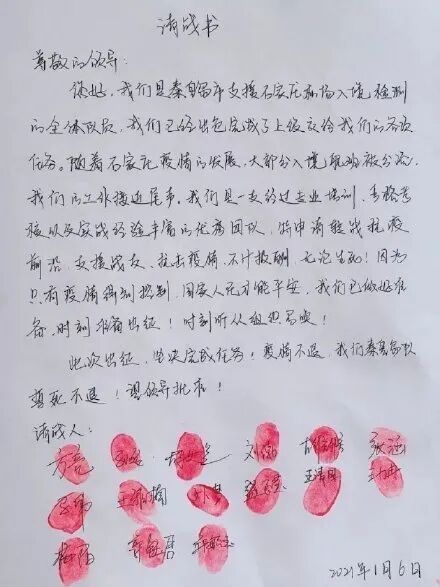 请战书
尊敬的领导：
你好，我们是秦皇岛市支援石家庄机场入境检测
的全体队员，我们已经出色完成了上级交给我们的各项
任务。随着石家庄疫情的发展，大部分入境航班被分流，
我们的工作接近尾声。我们是一支经过专业培训，严格考
核以及实战经验丰富的优秀团队，特申请转战抗疫
前沿，支援战友，抗击疫情，不计报酬，无论生死！因为
只有疫情得到控制，国家人民才能平安，我们已做好准
备，时刻准备出征！时刻听从组织召唤！
此次出征，坚决完成任务！疫情不退，我们秦皇岛队
誓死不退！望领导批准！
请战人：
2021年1月6日